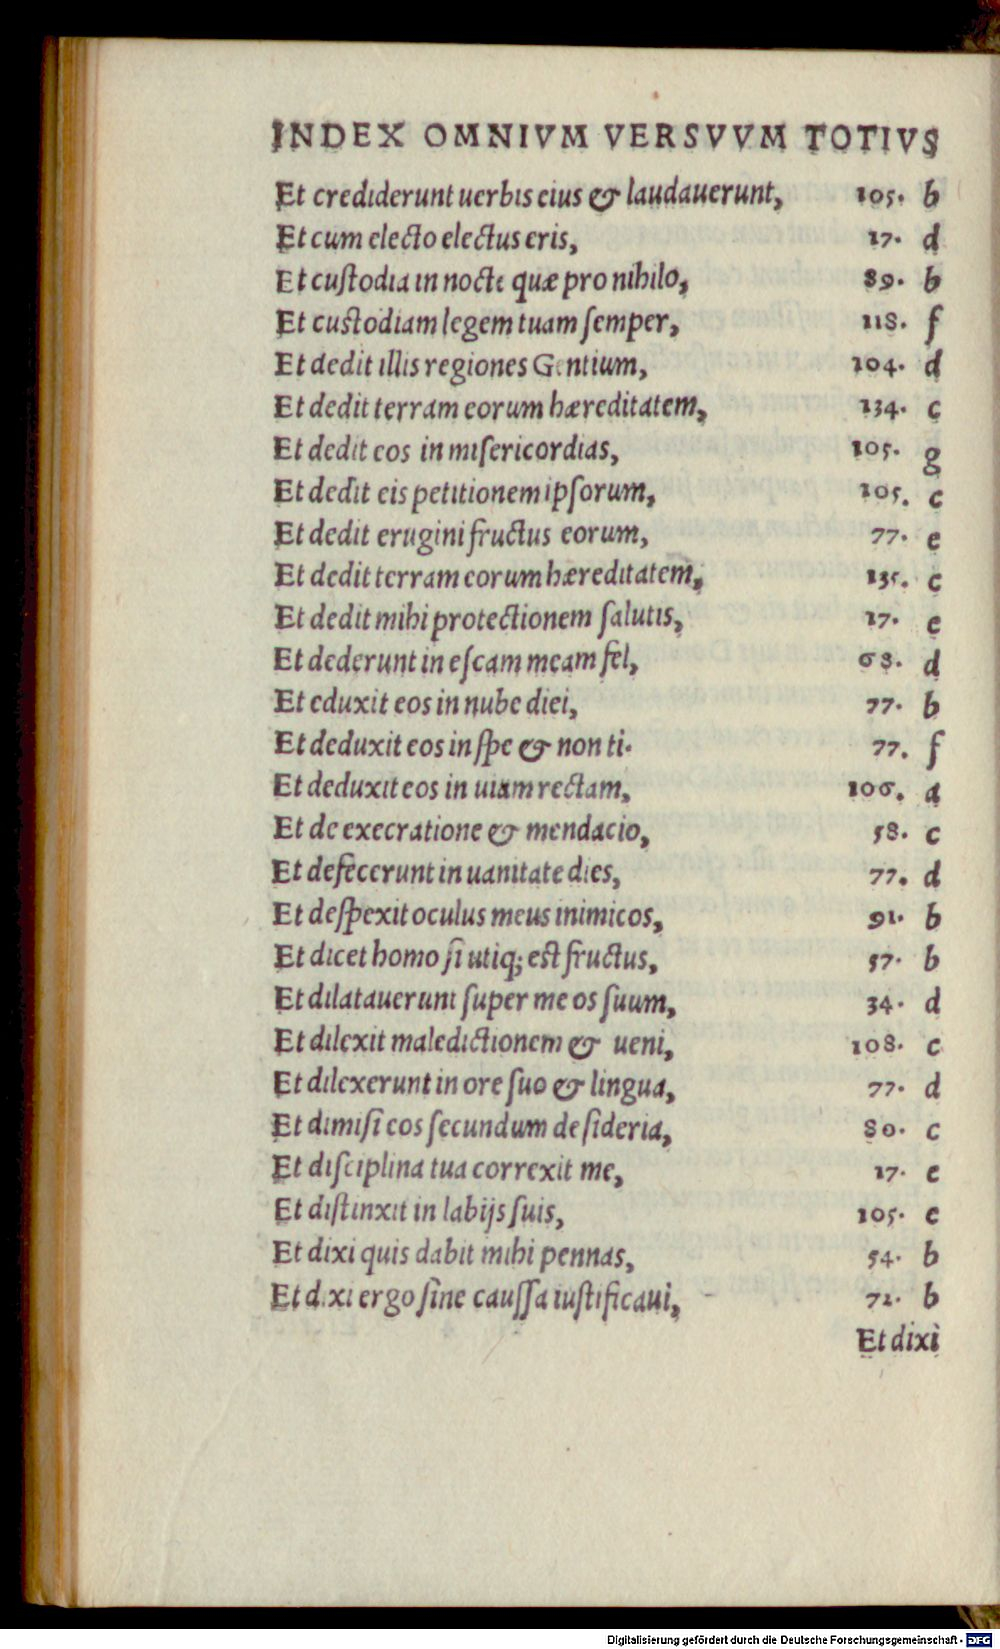 INDEX OMNIVM VERSVVM TOTIVS
Et crediderunt uerbis eius & laudauerunt, 105. b
Et cum electo electus eris, 17. d
Et custodia in nocte quæ pro nihilo, 89. b
Et custodiam legem tuam semper, 118. f
Et dedit illis regiones Gentium, 104. d
Et dedit terram eorum hæreditatem, 134. c
Et dedit eos in misericordias, 105. g
Et dedit eis petitionem ipsorum, 105. c
Et dedit erugini fructus eorum, 77. e
Et dedit terram eorum hæreditatem, 135. c
Et dedit mihi protectionem salutis, 17. e
Et dederunt in escam meam fel, 68. d
Et eduxit eos in nube diei, 77. b
Et deduxit eos in spe & non ti. 77. f
Et deduxit eos in uiam rectam, 106. a
Et de execratione & mendacio, 58. c
Et defecerunt in uanitate dies, 77. d
Et despexit oculus meus inimicos, 91. b
Et dicet homo si utiq; est fructus, 57. b
Et dilatauerunt super me os suum, 34. d
Et dilexit maledictionem & ueni, 108. c
Et dilexerunt in ore suo & lingua, 77. d
Et dimisi eos secundum desideria, 80. c
Et disciplina tua correxit me, 17. e
Et distinxit in labijs suis, 105. e
Et dixi quis dabit mihi pennas, 54. b
Et dixi ergo sine caussa iustificaui, 72. b
Et dixi
Digitalisierung gefördert durch die Deutsche Forschungsgemeinschaft - DFG